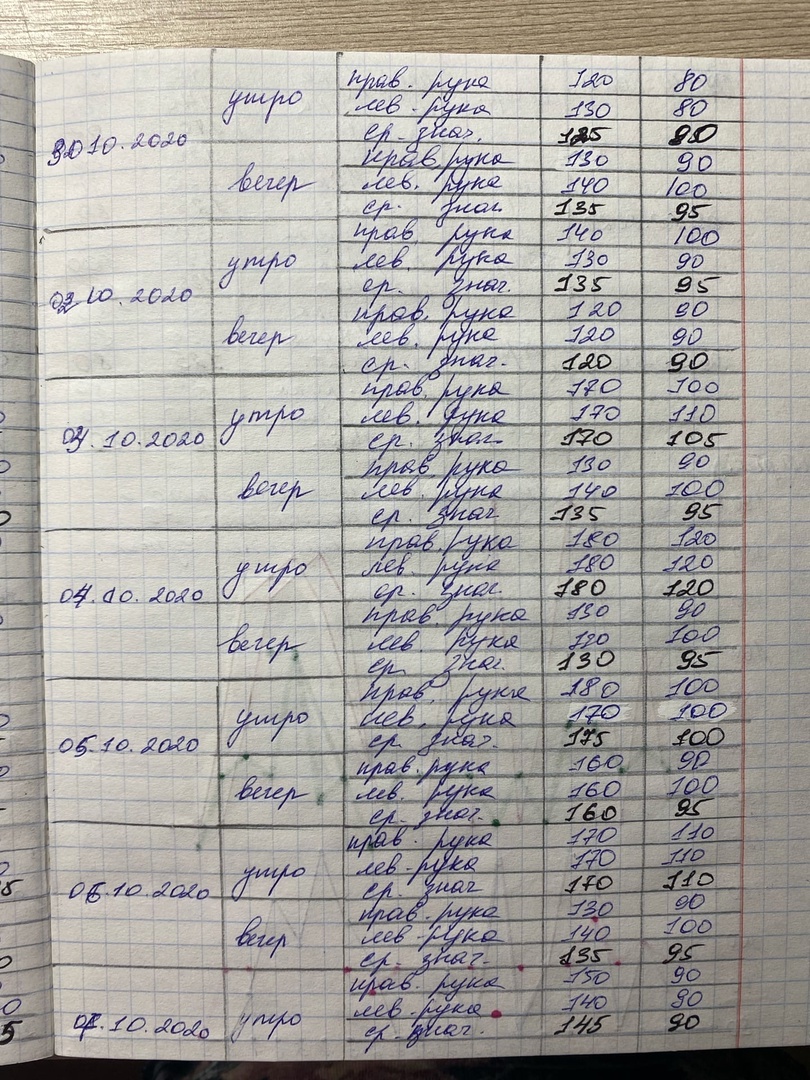 утро прав. рука 120 80
лев. рука 130 80
10.2020 ср. знач. 125 80
вечер прав. рука 130 90
лев. рука 140 100
ср. знач. 135 95
прав. рука 140 100
утро лев. рука 130 90
10.2020 ср. знач. 135 95
прав. рука 120 90
вечер лев. рука 120 90
ср. знач. 120 90
прав. рука 170 100
утро лев. рука 170 110
10.2020 ср. знач. 170 105
прав. рука 130 90
вечер лев. рука 140 100
ср. знач. 135 95
прав. рука 180 120
утро лев. рука 180 120
04.10.2020 ср. знач. 180 120
прав. рука 130 90
вечер лев. рука 100
ср. знач. 130 95
прав. рука 180 100
утро лев. рука 170 100
05.10.2020 ср. знач. 175 100
прав. рука 160 90
вечер лев. рука 160 100
ср. знач. 160 95
прав. рука 170 110
утро лев. рука 170 110
06.10.2020 ср. знач. 170 110
прав. рука 130 90
вечер лев. рука 140 100
ср. знач. 135 95
прав. рука 150 90
утро лев. рука 140 90
07.10.2020 ср. знач. 145 90